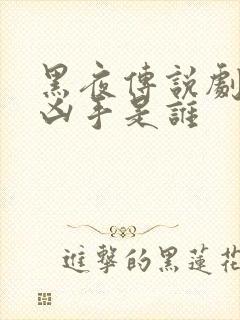 黑夜傳說劇
凶手是誰
進擊的黑蓮花